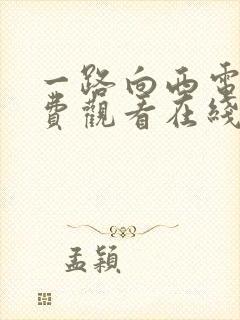 一路向西电
費觀看在綫
孟穎